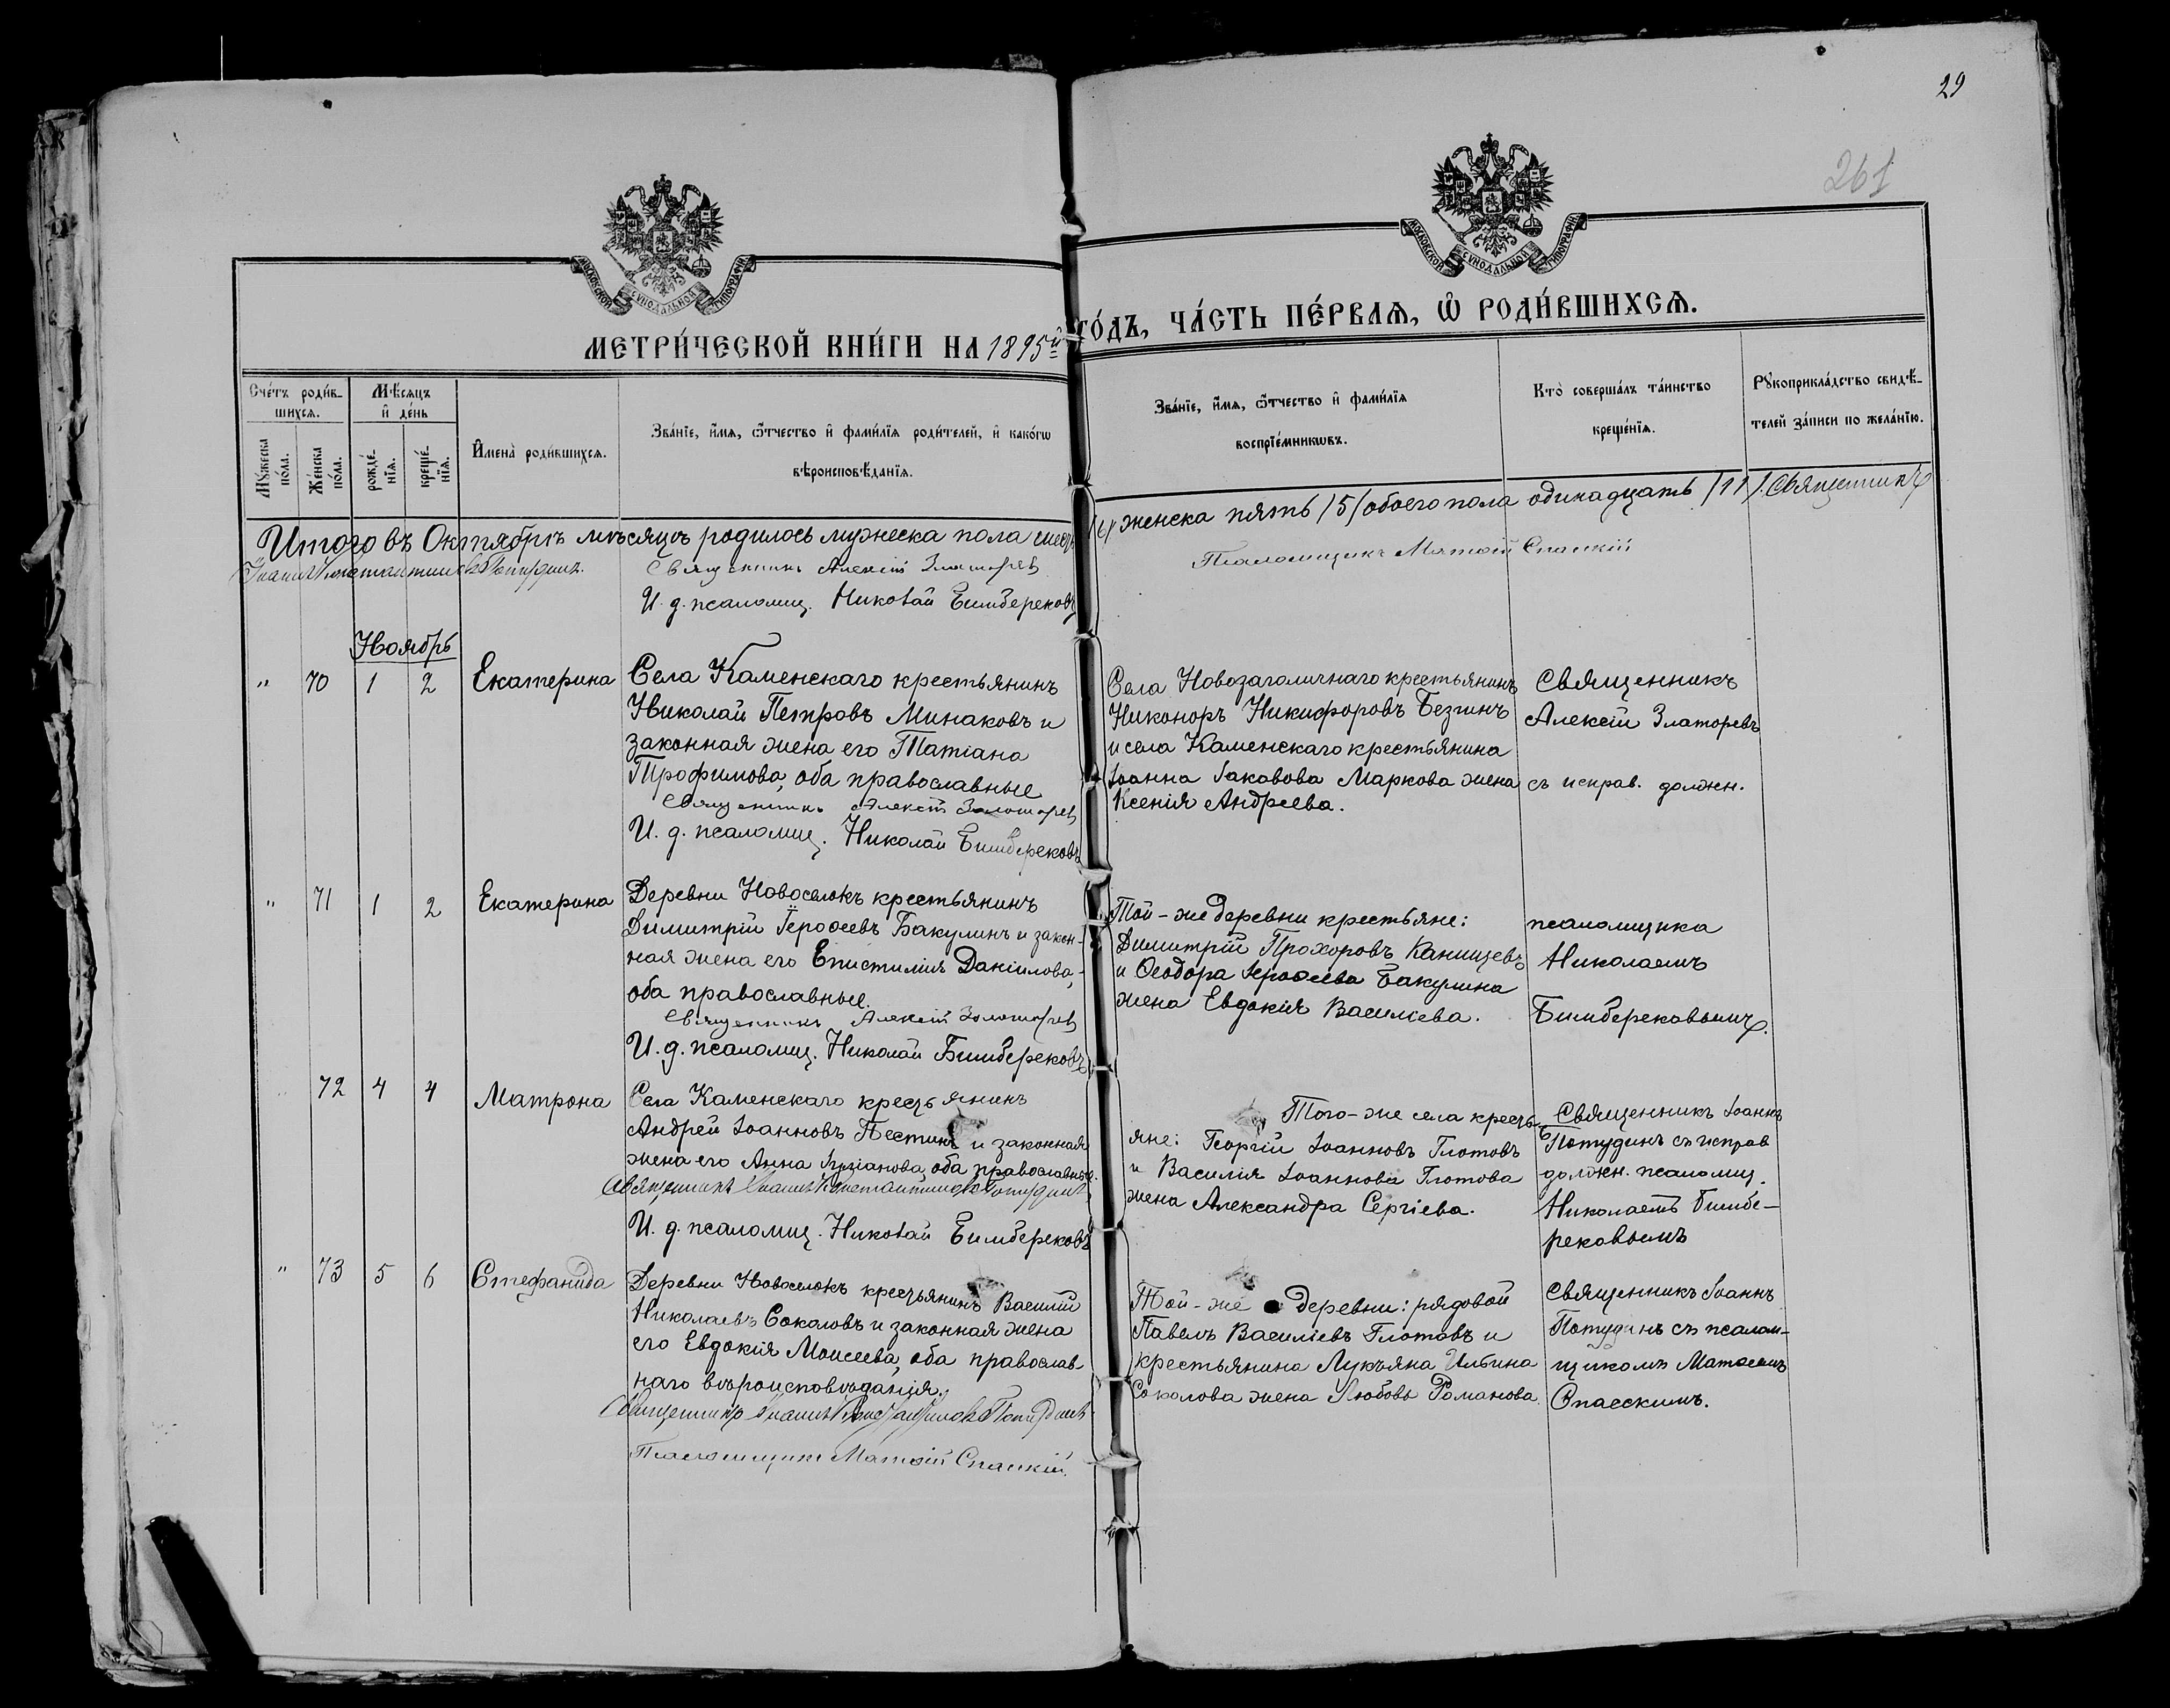 29
261
МОСКОВСКОЙ СѴНОДАЛЬНОЙ ТИПОГРАФІИ
МОСКОВСКОЙ СѴНОДАЛЬНОЙ ТИПОГРАФІИ
МЕТРИ́ЧЕСКОЙ КНИ́ГИ НА 1895й ГО́ДЪ, ЧА́СТЬ ПЕ́РВАѦ, Ѡ҆ РОДИ́ВШИХСѦ.
Сче́тъ роди́в-
шихсѧ.
Мꙋ́жеска
по́ла.
Же́нска
по́ла.
Мѣ́сѧцъ
и҆ де́нь
рожде́-
нїѧ.
креще́-
нїѧ.
И҆мена̀ роди́вшихсѧ.
Зва́нїе, и҆́мѧ, ѻ҆́тчество и҆ фами́лїѧ роди́телей, и҆ како́гѡ
вѣроисповѣ́данїѧ.
Зва́нїе, и҆́мѧ, ѻ҆́тчество и҆ фами́лїѧ
воспрїе́мникѡвъ.
Кто̀ соверша́лъ та́инство
креще́нїѧ.
Рꙋкоприкла́дство свидѣ́-
телей за́писи по жела́нїю.
Итого въ Октябрѣ мѣсяцѣ родилось мужеска пола шесть /6/ женска пять /5/ обоего пола одинадцать /11/. Священникъ
Іоаннъ Константиновъ Потудинъ. Священникъ Алексій Златорев Псаломщикъ Матѳій Спасскій
И. д. псаломщ. Николай Бимберековъ
Ноябрь
" 70 1 2 Екатерина
Села Каменскаго крестьянинъ
Николай Петровъ Минаковъ и
законная жена его Татіана
Трофимова, оба православные
Священникъ Алексій Золоторев
И. д. псаломщ. Николай Бимберековъ
Села Новозаголичнаго крестьянинъ
Никоноръ Никифоровъ Безгинъ
и села Каменскаго крестьянина
Іоанна Іакавова Маркова жена
Ксенія Андреева.
Священникъ
Алексій Златоревъ
съ исправ. должн.
" 71 1 2 Екатерина
Деревни Новоселокъ крестьянинъ
Димитрій Іероѳеевъ Бакулинъ и закон-
ная жена его Епистимія Даніилова,
оба православные.
Священникъ Алексій Золоторев
И. д. псаломщ. Николай Бимберековъ
Той-же деревни крестьяне:
Димитрій Прохоровъ Канищевъ
и Ѳеодора Іероѳеева Бакулина
жена Евдокія Василіева.
псаломщика
Николаемъ
Бимберековымъ.
72 4 4 Матрона
Села Каменскаго крестьянинъ
Андрей Іоанновъ Пестинъ и законная
жена его Анна оба православные.
Священникъ Іоаннъ Константиновъ Потудинъ
И. д. псаломщ. Николай Бимберековъ
Того-же села кресть-
яне: Георгій Іоанновъ Глотовъ
и Василія Іоаннова Глотова
жена Александра Сергіева.
Священникъ Іоаннъ
Потудинъ съ исправ
должн. псаломщ.
Николаемъ Бимбе-
рековымъ
" 73 5 6 Стефанида
Деревни Новоселокъ крестьянинъ Василій
Николаевъ Соколовъ и законная жена
его Евдокія Моисеева, оба православ-
наго вѣроисповѣданія.
Священникъ Іоаннъ Константиновъ Потудинъ
Псаломщикъ Матѳій Спасскій.
Той-же деревни: рядовой
Павелъ Василіевъ Глотовъ и
крестьянина Лукьяна Ильина
Соколова жена Любовь Романова.
Священникъ Іоаннъ
Потудинъ съ псалом-
щикомъ Матѳеемъ
Спасскимъ.